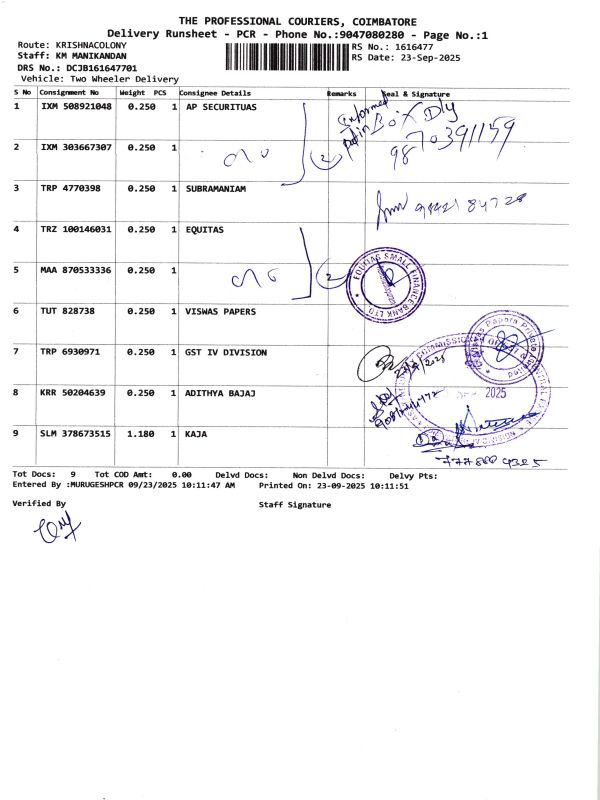 THE PROFESSIONAL COURIERS, COIMBATORE
Delivery Runsheet - PCR - Phone No.:9047080280 - Page No.:1
Route: KRISHNACOLONY
RS No.: 1616477
Staff: KM MANIKANDAN
RS Date: 23-Sep-2025
DRS No.: DCJB161647701
Vehicle: Two Wheeler Delivery
S No Consignment No Weight PCS Consignee Details Remarks Seal & Signature
1 IXM 508921048 0.250 1 AP SECURITUAS
Informed
putin Box Dly
9870391159
2 IXM 303667307 0.250 1
2
3 TRP 4770398 0.250 1 SUBRAMANIAM
84728
4 TRZ 100146031 0.250 1 EQUITAS
5 MAA 870533336 0.250 1
2
EQUITAS SMALL FINANCE BANK LTD
6 TUT 828738 0.250 1 VISWAS PAPERS
7 TRP 6930971 0.250 1 GST IV DIVISION
8 KRR 50204639 0.250 1 ADITHYA BAJAJ
2025
9 SLM 378673515 1.180 1 KAJA
Tot Docs: 9 Tot COD Amt: 0.00 Delvd Docs: Non Delvd Docs: Delvy Pts:
Entered By :MURUGESHPCR 09/23/2025 10:11:47 AM Printed On: 23-09-2025 10:11:51
Verified By Staff Signature